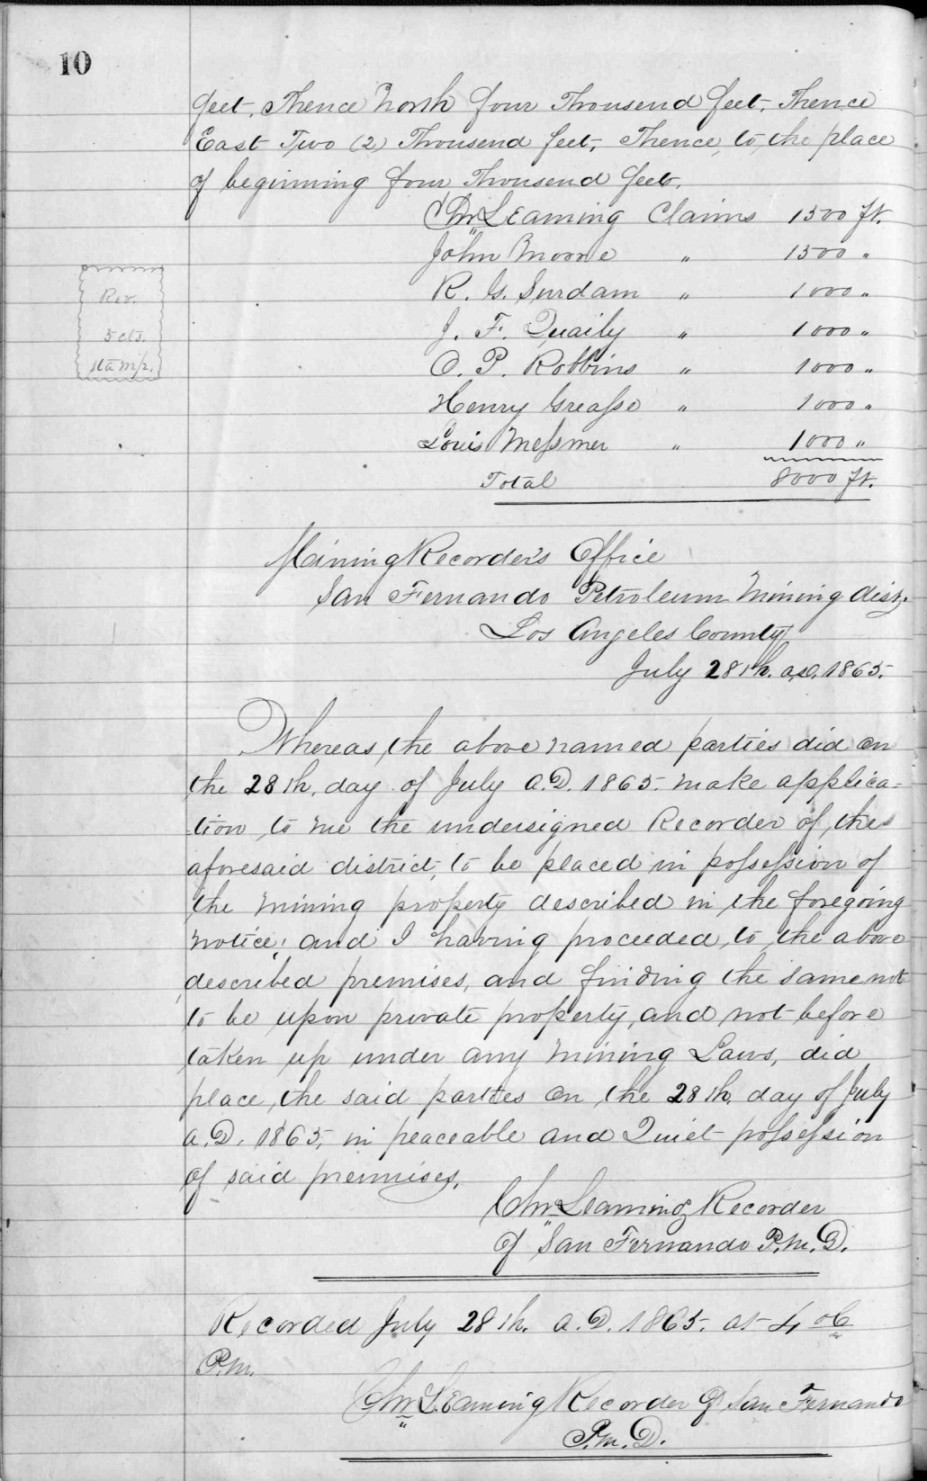 10
feet, Thence North four Thousend feet, Thence
East Two (2) Thousend feet, Thence to the place
of beginning four Thousend feet.
Chr Leaming Claims 1500 ft.
John Moore " 1500 "
R. G. Surdam " 1000 "
J. F. Quaily " 1000 "
O. P. Robbins " 1000 "
Henry Greasse " 1000 "
Louis Messmer " 1000 "
Total 8000 ft.
Rev.
5 cts.
stamp.
Mining Recorder's Office
San Fernando Petroleum Mining dist.
Los Angeles County
July 28th. A.D. 1865.
Whereas, the above named parties did on
the 28th. day of July A.D. 1865. make applica-
tion to me the undersigned Recorder of the
aforesaid district, to be placed in possession of
the mining property described in the foregoing
notice, and I having proceeded to the above
described premises, and finding the same not
to be upon private property, and not before
taken up under any Mining Laws, did
place the said parties on the 28th. day of July
A.D. 1865, in peaceable and Quiet possession
of said premises.
Chr Leaming Recorder
of San Fernando P.M.D.
Recorded July 28th. A.D. 1865. at 4 oC
P.M.
Chr Leaming Recorder of San Fernando
P.M.D.